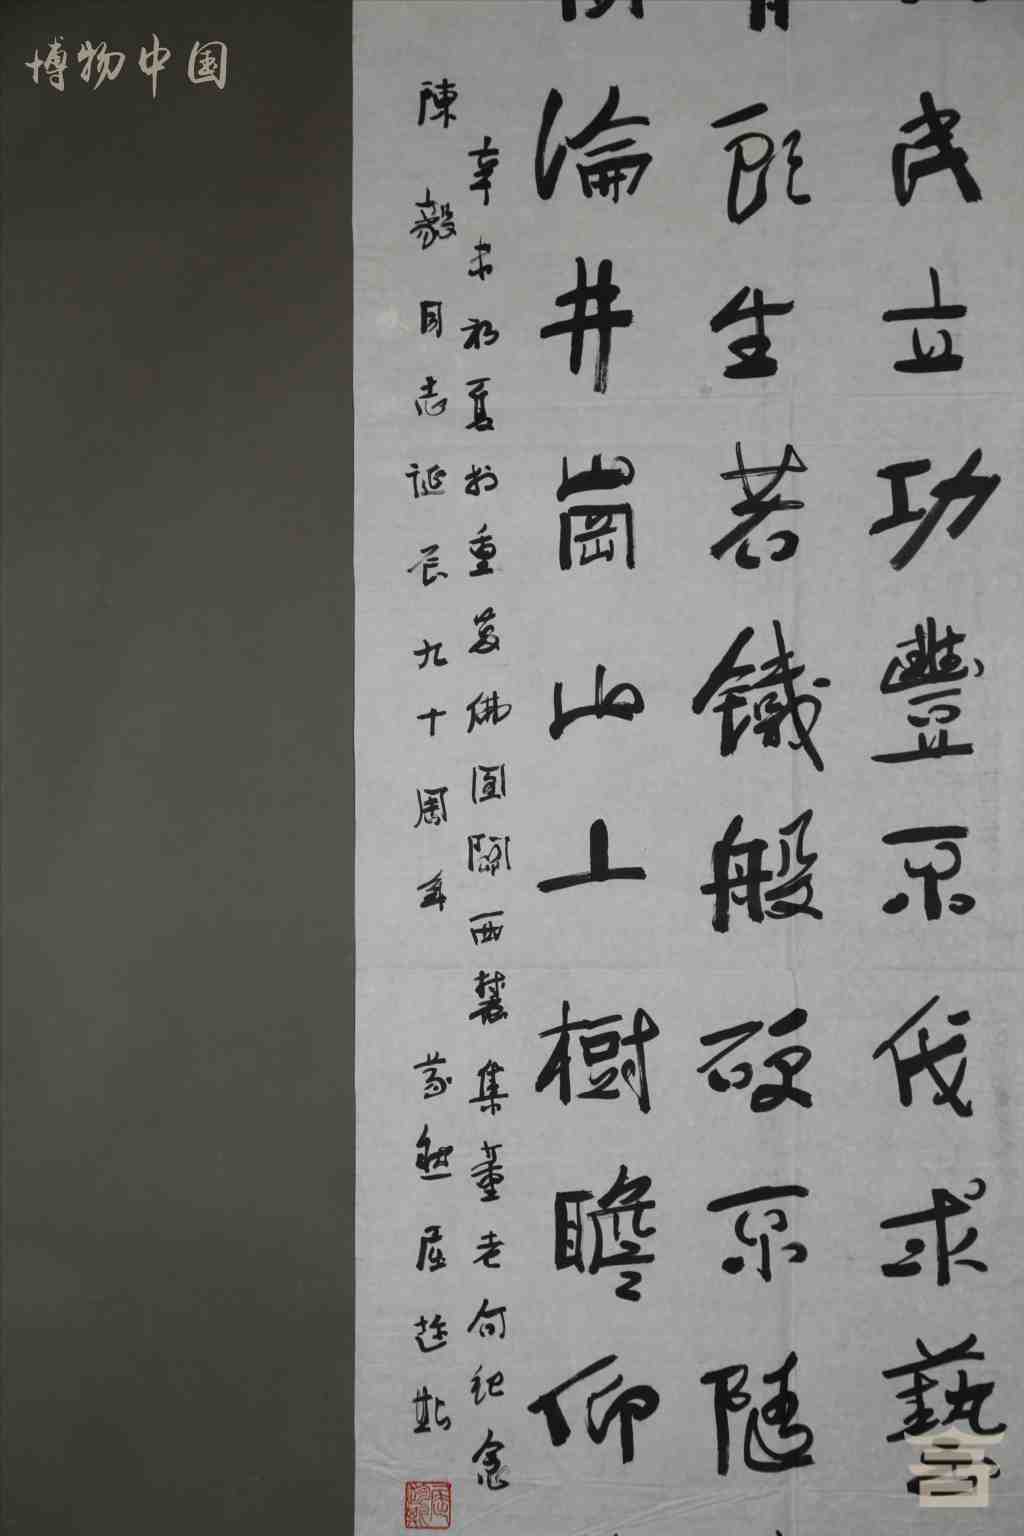 博物中国
民立功豐不伐求藝
生若鐵般硬不隨
淪井崗山上樹瞻仰
辛未初夏於重慶佛圖關西麓集董老句紀念
陳毅同志誕辰九十周年